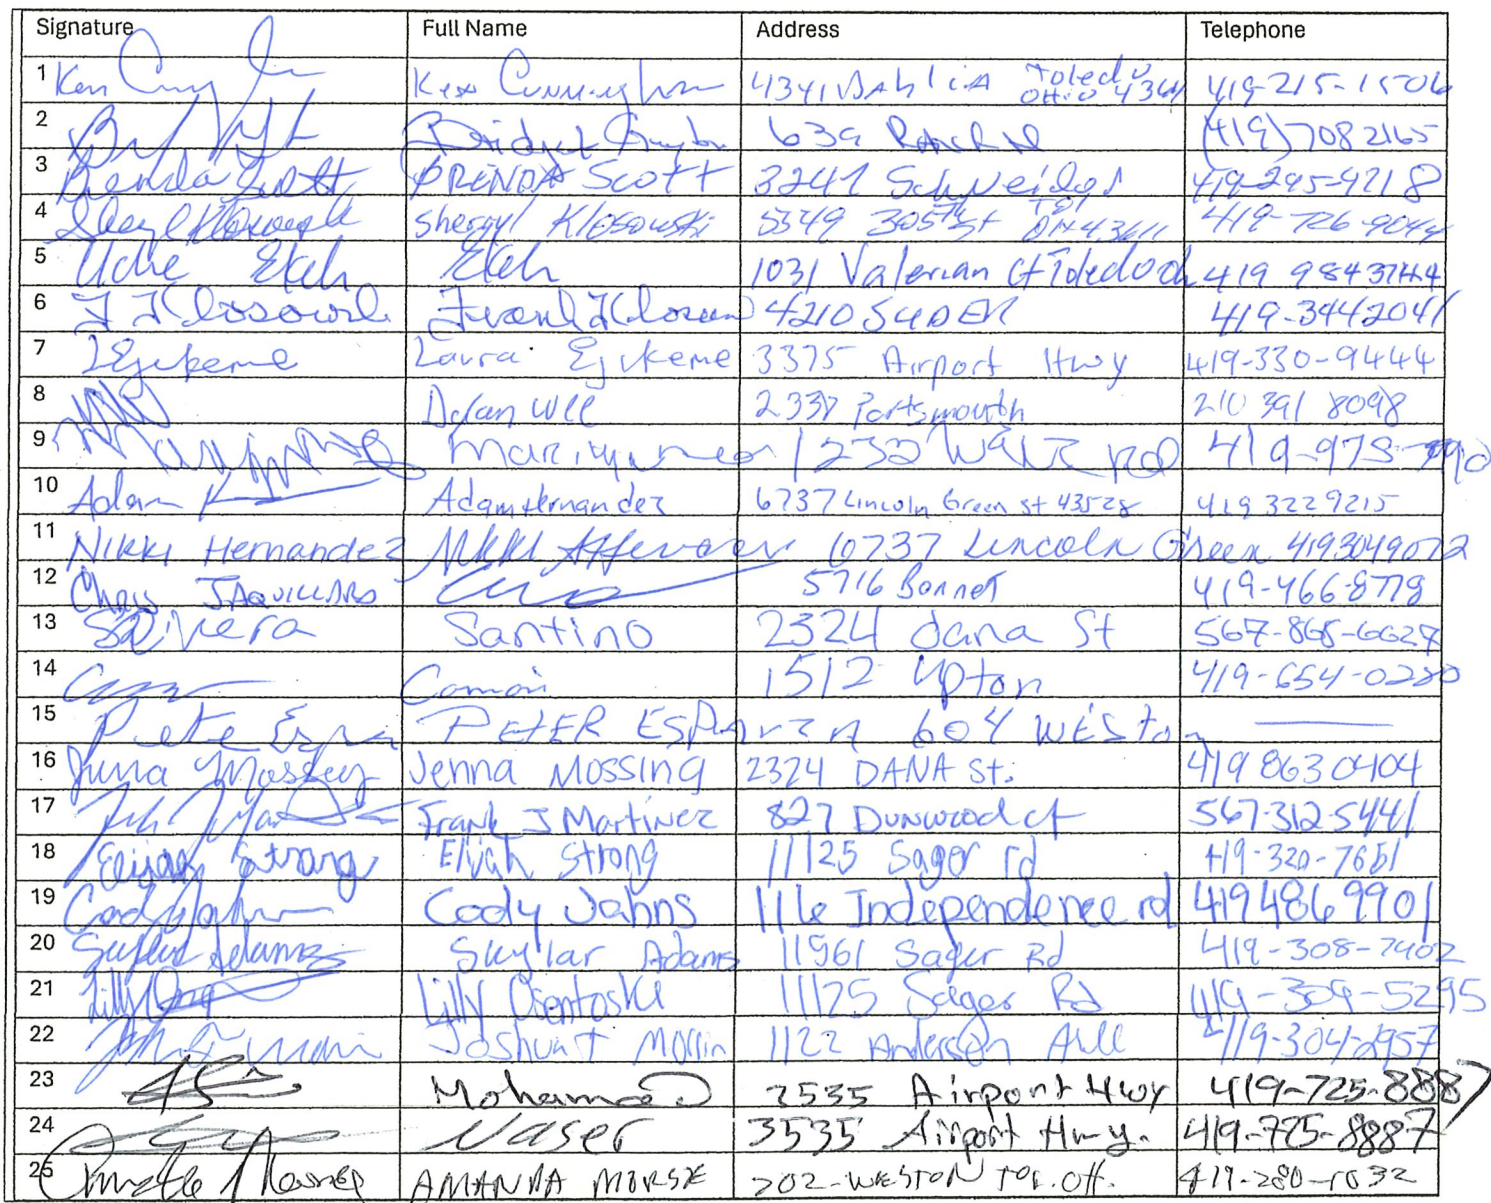 Signature Full Name Address Telephone
1 Ken Ken Cunningham 4341 DAhliA Toledo Ohio 419-215-1506
2 Bridget 639 (419) 708 2165
3 Brenda Scott BRENDA Scott 3247 Schneider 419-295-9218
4 Sheryl Klosowski 5349 305th St Tol OH 43611 419-726-9044
5 Uche Ekeh Ekeh 1031 Valerian Ct Toledo oh 419 984 3744
6 F Klosowski Frank Klosow 4210 SUDER 419-344 2041
7 LEjikeme Laura Ejikeme 3375 Airport Hwy 419-330-9444
8 Dylan 2337 Portsmouth 210 391 8098
9 1232 Rd 419-973-
10 Adam Adam Hernandez 6737 Lincoln Green st 43528 419 322 9215
11 NIKKI Hernandez 6737 Lincoln Green 419 304 9072
12 Chris JAQUILLARD 5716 Bonnet 419-466-8778
13 SRivera Santino 2324 dana St 567-868-6629
14 1512 Upton 419-654-0280
15 Pete PETER ESPArzA 604 WESton
16 Jenna Mossing Jenna Mossing 2324 DANA St. 419 863 0404
17 Frank J Martinez 827 Dunwood ct 567-312-5441
18 Elijah Strong Elijah Strong 11125 Sager rd 419-320-7651
19 Cody Jahns Cody Jahns 116 Independence rd 419 486 9901
20 Skylar Adams Skylar Adams 11961 Sager Rd 419-308-7402
21 Lilly Lilly Osentoski 11125 Sager Rd 419-309-5295
22 Joshua T 1122 Anderson Ave 419-304-2957
23 Mohamed 3535 Airport Hwy 419-725-8887
24 Naser 3535 Airport Hwy. 419-725-8887
25 AMANDA MORSE 202-WESTON 419-280-1032